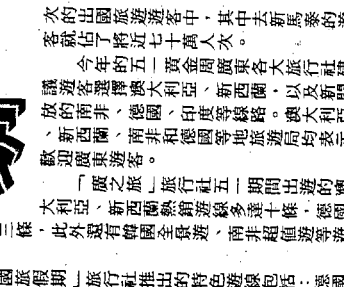 次的出國旅遊遊客中，其中去新馬泰的遊
客就佔了將近七十萬人次。
今年的五一黃金周廣東各大旅行社建
議遊客選擇澳大利亞、新西蘭，以及新開
放的南非、德國、印度等線路。澳大利亞
、新西蘭、南非和德國等地旅遊局均表示
歡迎廣東遊客。
「廣之旅」旅行社五一期間出遊的澳
大利亞、新西蘭熱銷遊線多達十條，德國
三條，此外還有韓國全景遊、南非超值遊等遊
國旅假期」旅行社推出的特色遊線包括：德國